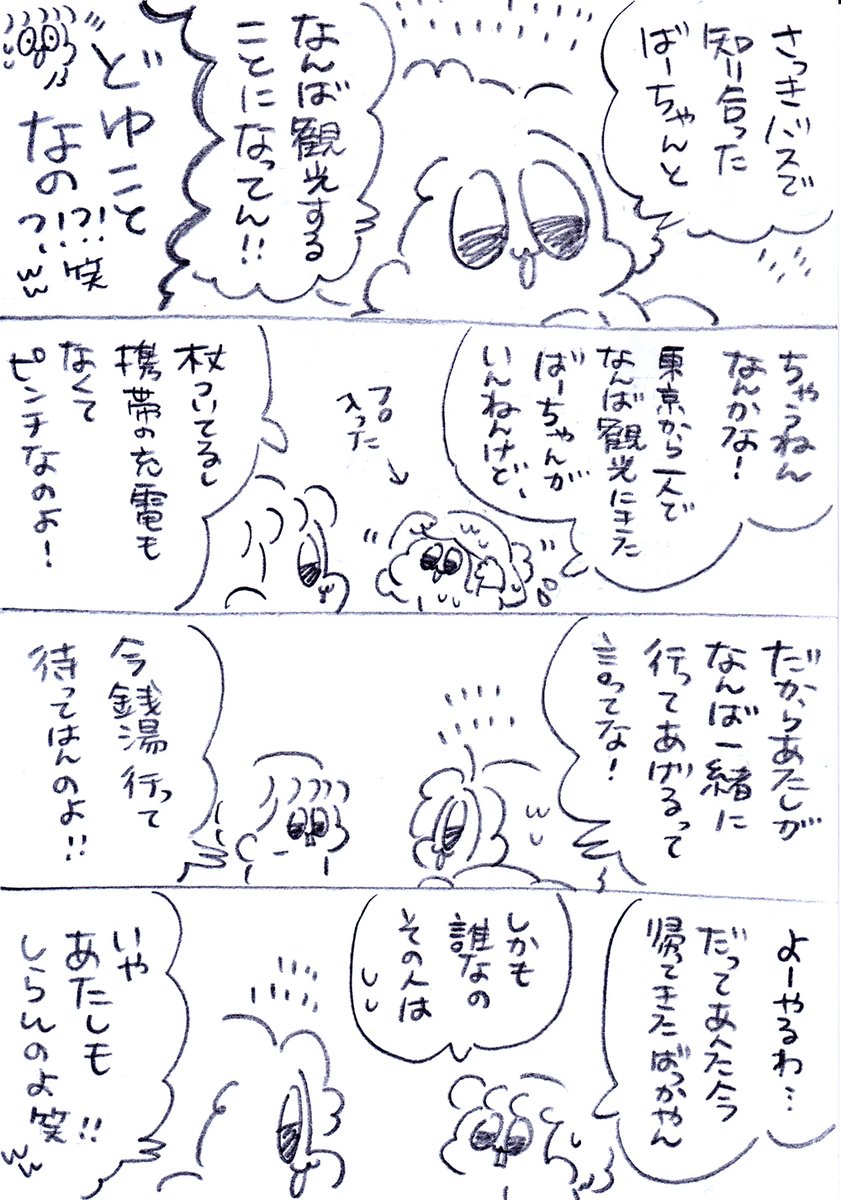 さっきバスで
知り合った
ばーちゃんと
なんば観光する
ことになってん!!
どゆこと
なの?!?!笑
ww
ちゃうねん
なんかな!
東京から一人で
なんば観光にきた
ばーちゃんが
いんねんけど、
フロ
入った
杖ついてるし
携帯の充電も
なくて
ピンチなのよ!
だからあたしが
なんば一緒に
行ってあげるって
言ってな!
今銭湯行って
待ってはんのよ!!
よーやるわ…
だってあんた今
帰ってきたばっかやん
しかも
誰なの
その人は
いや
あたしも
しらんのよ笑!!
ww